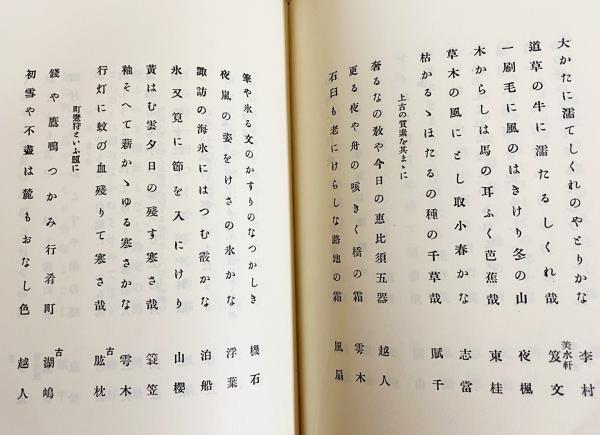 大かたに濡てしくれのやとりかな 李村
道草の牛に濡たるしくれ哉 美水軒 笈文
一刷毛に風のはきけり冬の山 夜楓
木からしは馬の耳ふく芭蕉哉 東桂
草木の風にとし取小春かな 志當
枯かるゝほたるの種の千草哉 賦千
上古の質素を其まゝに
奢るなの敎や今日の惠比須五器 越人
更る夜や舟の咳きく橋の霜 雩木
石臼も老にけらしな路地の霜 風扇
筆や氷る文のかすりのなつかしき 機石
夜嵐の姿をけさの氷かな 浮葉
諏訪の海氷にはつむ霰かな 泊船
氷又筧に節を入にけり 山櫻
黃はむ雲夕日の殘す寒さ哉 簔笠
釉そへて薪かゝゆる寒さかな 雩木
行灯に蚊の血殘りて寒さ哉 古 肱枕
町鷹狩といふ題に
餞や鷹鴨つかみ行肴町 古 湖嶋
初雪や不盡は麓もおなし色 越人